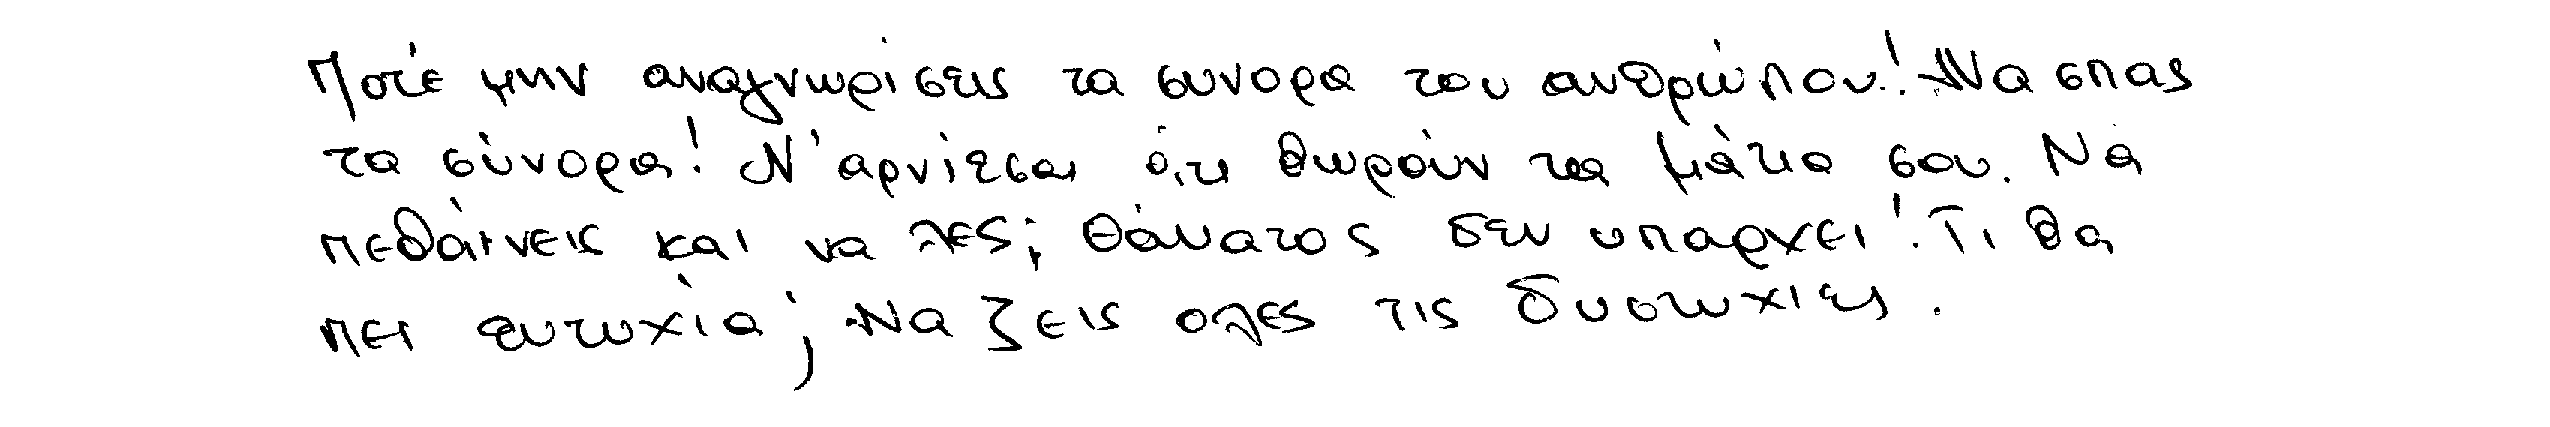 Ποτέ μην αναγνωρίσεις τα συνορα του ανθρώπου! Να σπας
τα σύνορα! Ν' αρνιέσαι ό,τι θωρούν τα μάτια σου. Να
πεθαίνεις και να λες; Θάνατος δεν υπαρχει! Τι θα
πει ευτυχία; Να ζεις ολες τις δυστυχίες.